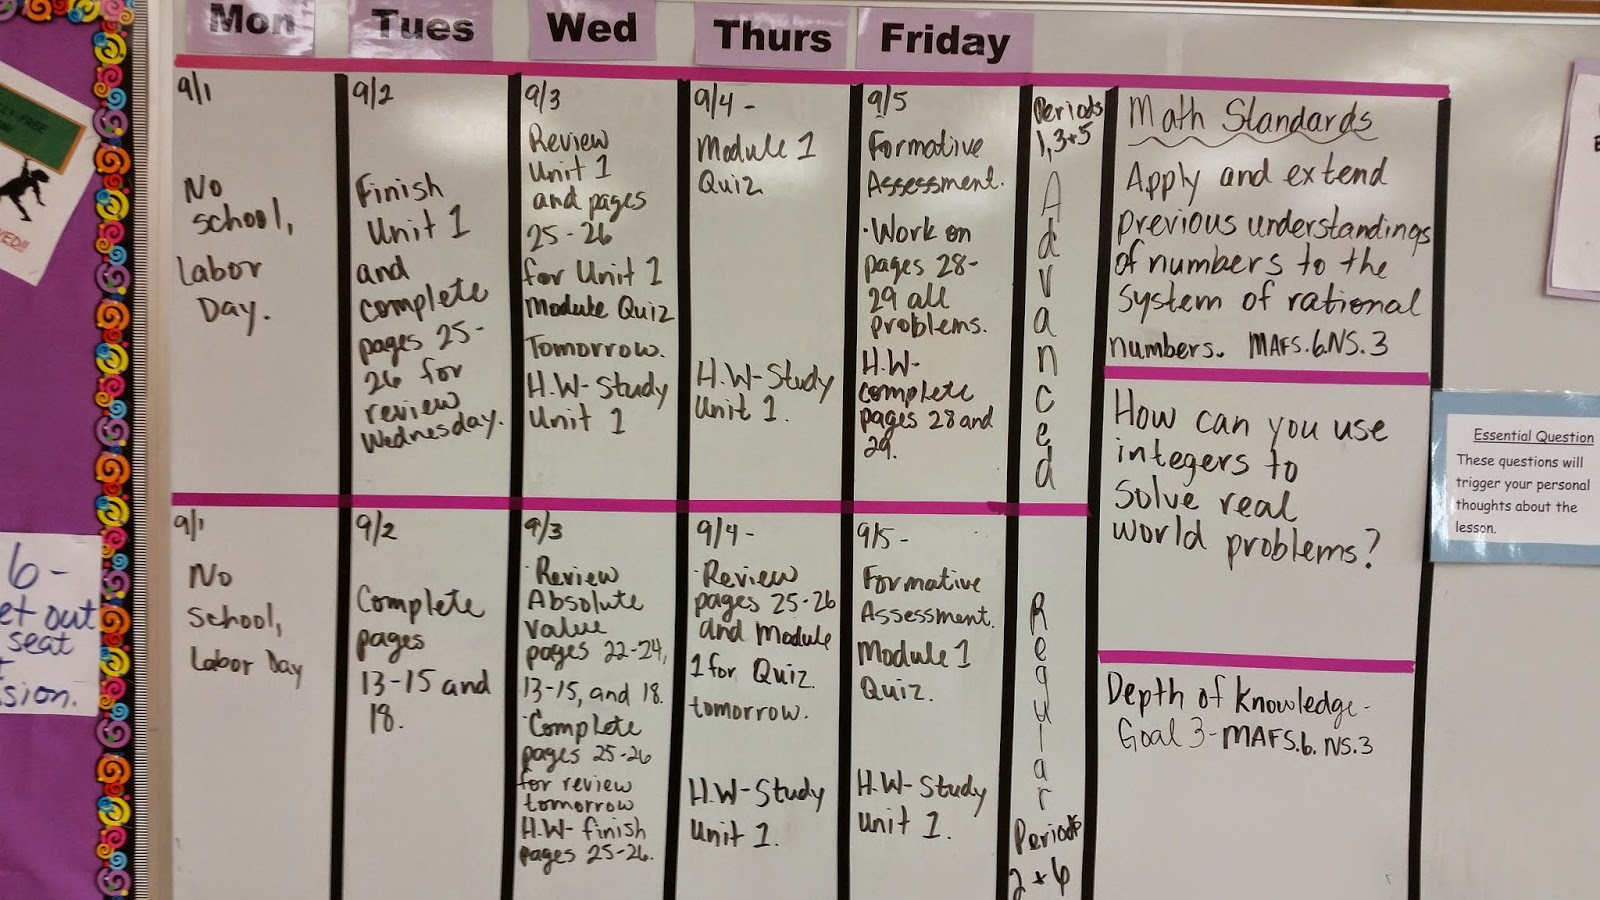 Mon
Tues
Wed
Thurs
Friday
9/1
No
school,
Labor
Day.
9/2
Finish
Unit 1
and
complete
pages 25-
26 for
review
Wednesday.
9/3
Review
Unit 1
and pages
25-26
for Unit 1
Module Quiz
Tomorrow.
H.W-Study
Unit 1
9/4-
Module 1
Quiz
H.W-Study
Unit 1.
9/5
Formative
Assessment.
·Work on
pages 28-
29 all
problems.
H.W-
complete
pages 28 and
29.
Periods
1,3+5
Advanced
9/1
No
School,
Labor Day
9/2
Complete
pages
13-15 and
18.
9/3
·Review
Absolute
value
pages 22-24,
13-15, and 18.
·Complete
pages 25-26
for review
tomorrow
H.W- finish
pages 25-26.
9/4-
·Review
pages 25-26
and Module
1 for Quiz
tomorrow.
H.W-Study
Unit 1.
9/5-
Formative
Assessment.
Module 1
Quiz.
H.W-Study
Unit 1.
Regular
Periods
2+6
Math Standards
Apply and extend
previous understandings
of numbers to the
system of rational
numbers. MAFS.6.NS.3
How can you use
integers to
solve real
world problems?
Depth of Knowledge-
Goal 3-MAFS.6.NS.3
Essential Question
These questions will
trigger your personal
thoughts about the
lesson.
6-
out
seat